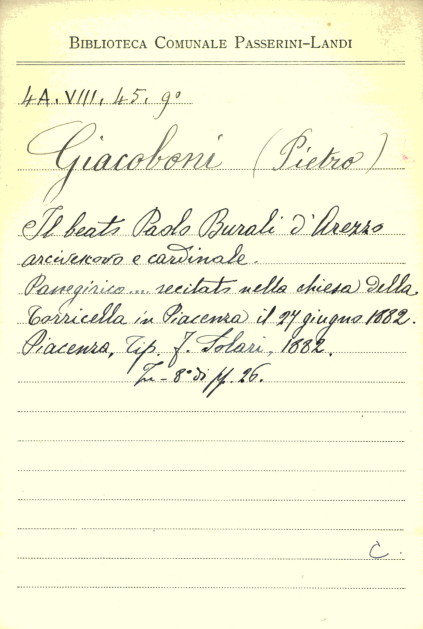 BIBLIOTECA COMUNALE PASSERINI-LANDI
4A. VIII. 45. 9°
Giacoboni (Pietro)
Il beato Paolo Burali d'Arezzo
arcivescovo e cardinale.
Panegirico.... recitato nella chiesa della
Torricella in Piacenza il 27 giugno 1882.
Piacenza, Tip. F. Solari, 1882.
In-8° di pp. 26.
C.